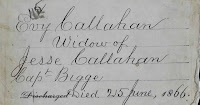 Evy Callahan
Widow of
Jesse Callahan
Capt Bigge
Discharged Died 25 June, 1866.